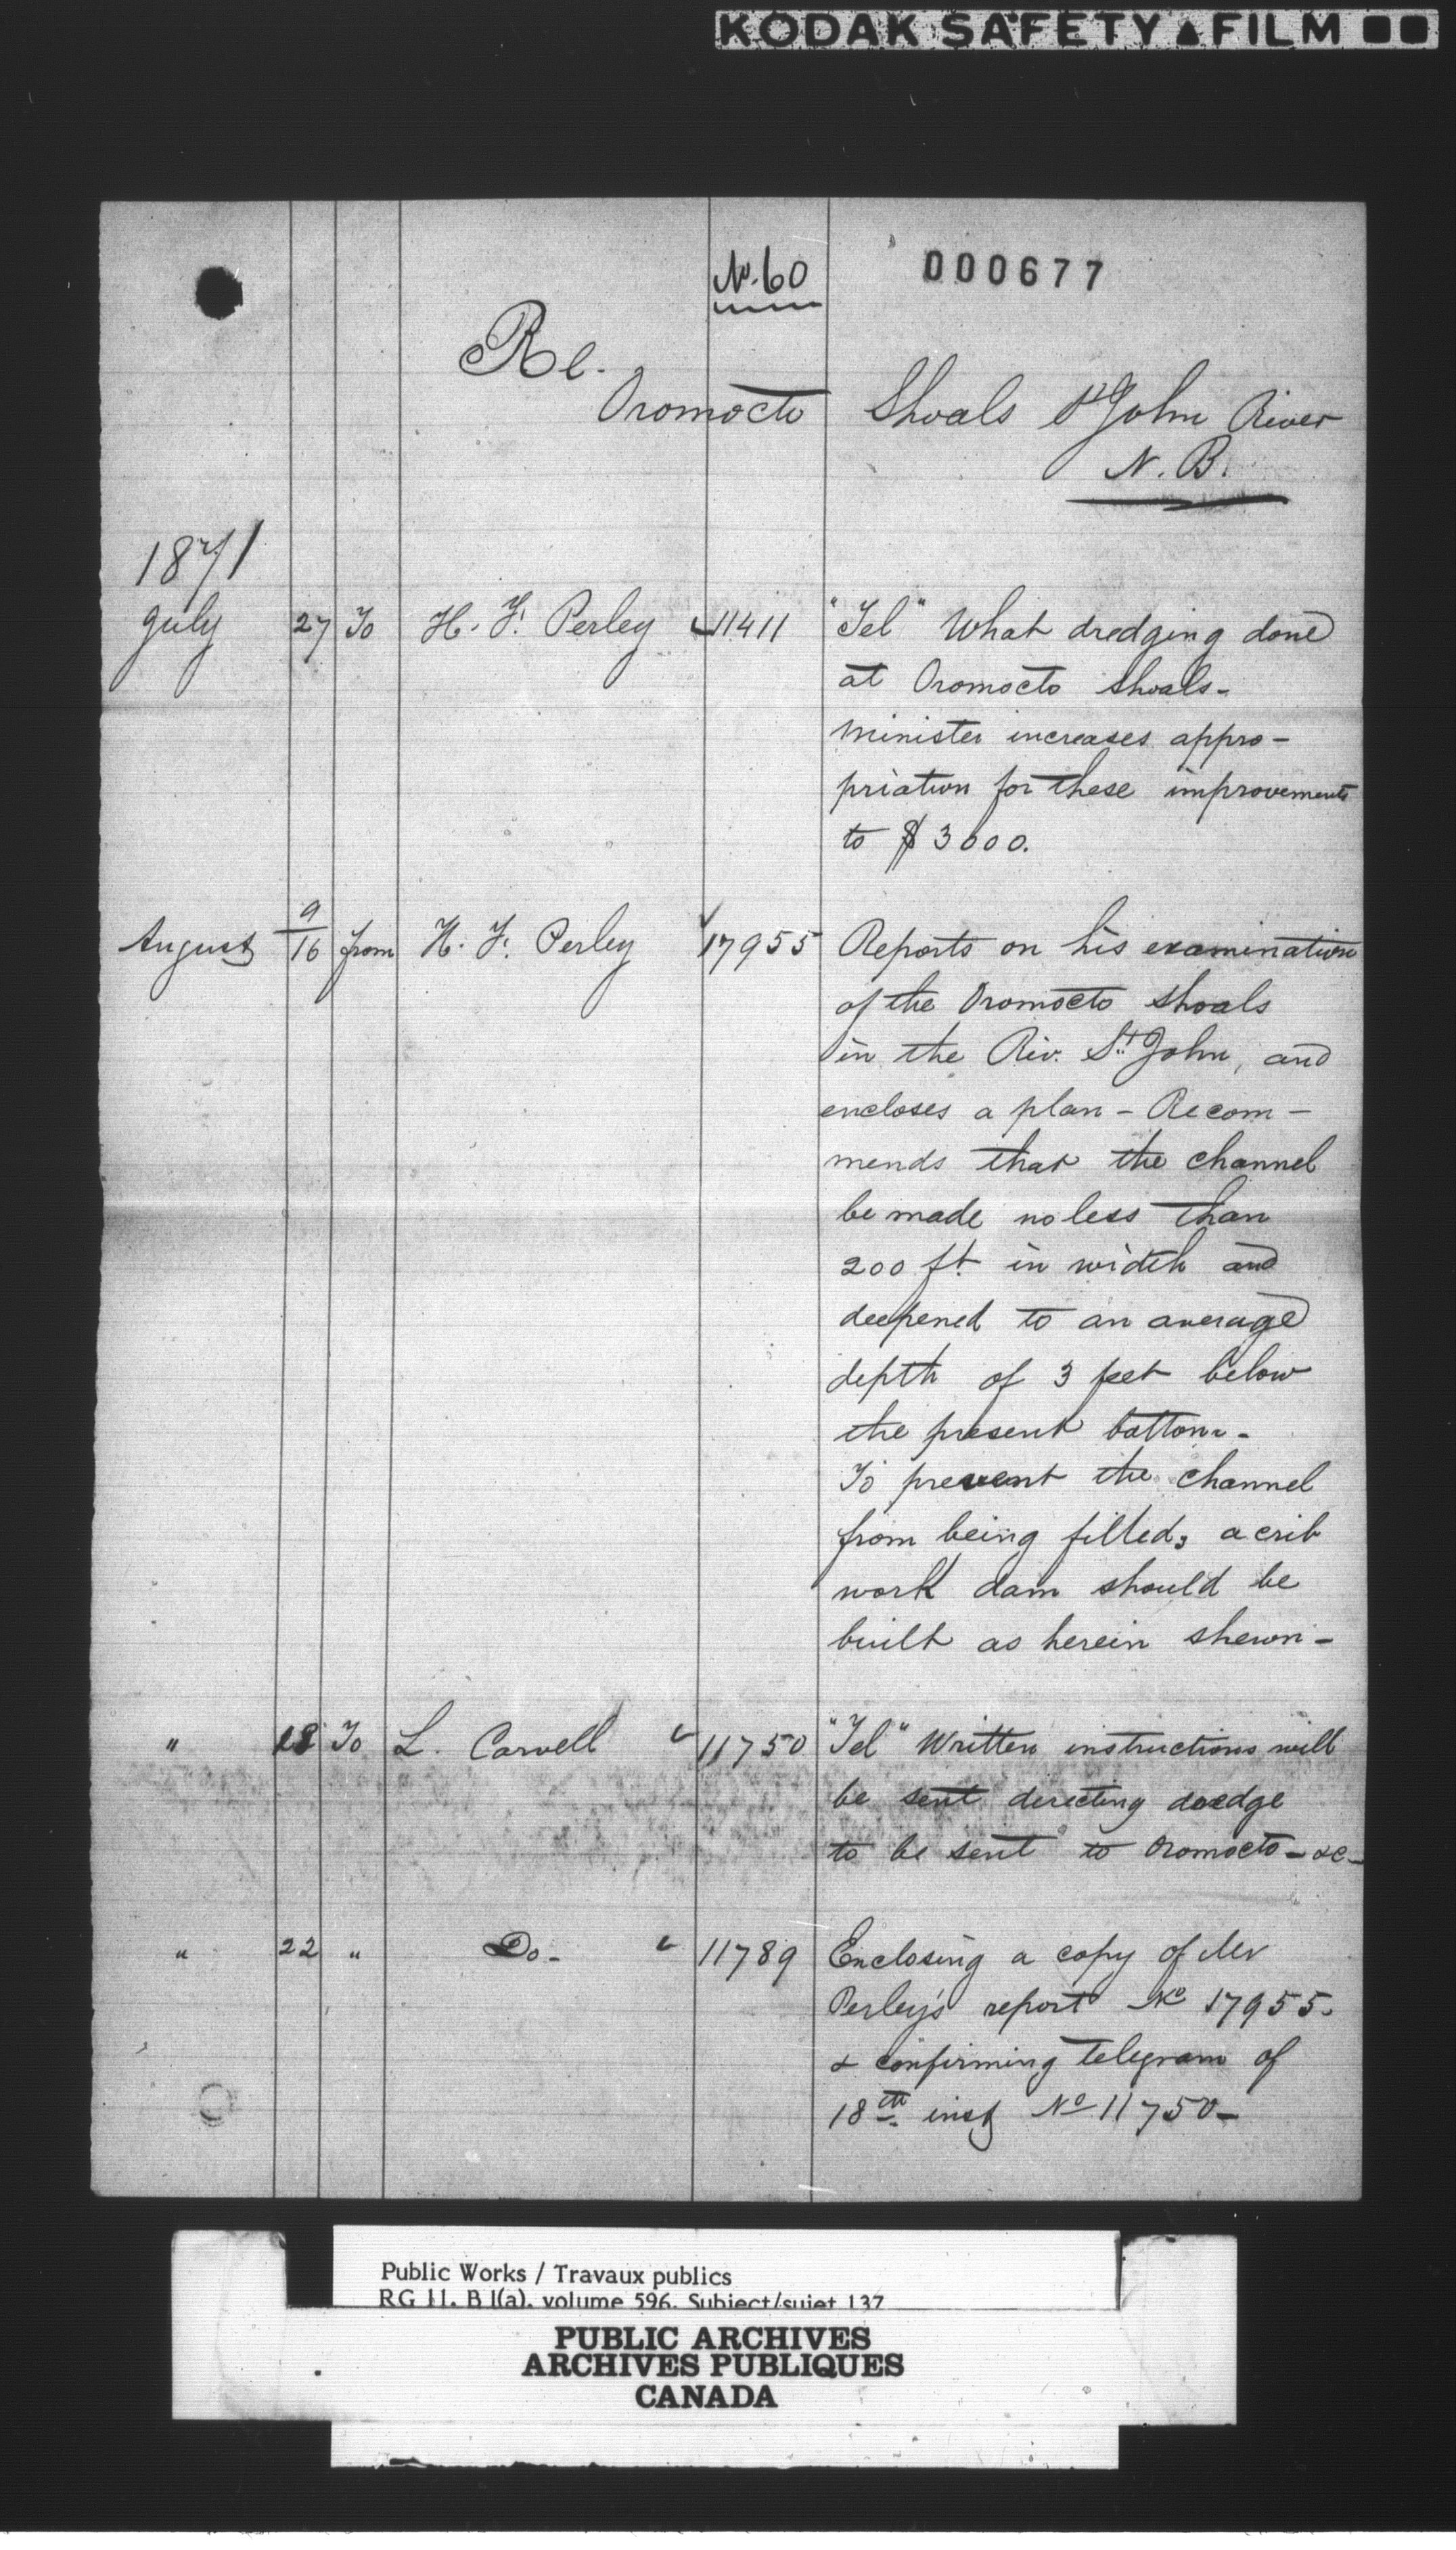 KODAK SAFETY FILM
No. 60
000677
Re.
Oromocto Shoals St John River
N. B.
1871
July 27 To H. F. Perley 11411 "Tel" What dredging done
at Oromocto shoals-
minister increases appro-
priation for these improvements
to $3000.
August 9/16 from H. F. Perley 17955 Reports on his examination
of the Oromocto shoals
in the Riv. St. John, and
encloses a plan - Recom-
mends that the channel
be made no less than
200 ft. in width and
deepened to an average
depth of 3 feet below
the present bottom-
To prevent the channel
from being filled, a crib
work dam should be
built as herein shewn-
" 18 To L. Carvell 11750 "Tel" Written instructions will
be sent directing dredge
to be sent to Oromocto - &c-
" 22 " Do- 11789 Enclosing a copy of Mr
Perley's report No 17955.
& confirming telegram of
18th inst No 11750-
Public Works / Travaux publics
RG 11, B 1(a), volume 596, Subject/sujet 137
PUBLIC ARCHIVES
ARCHIVES PUBLIQUES
CANADA